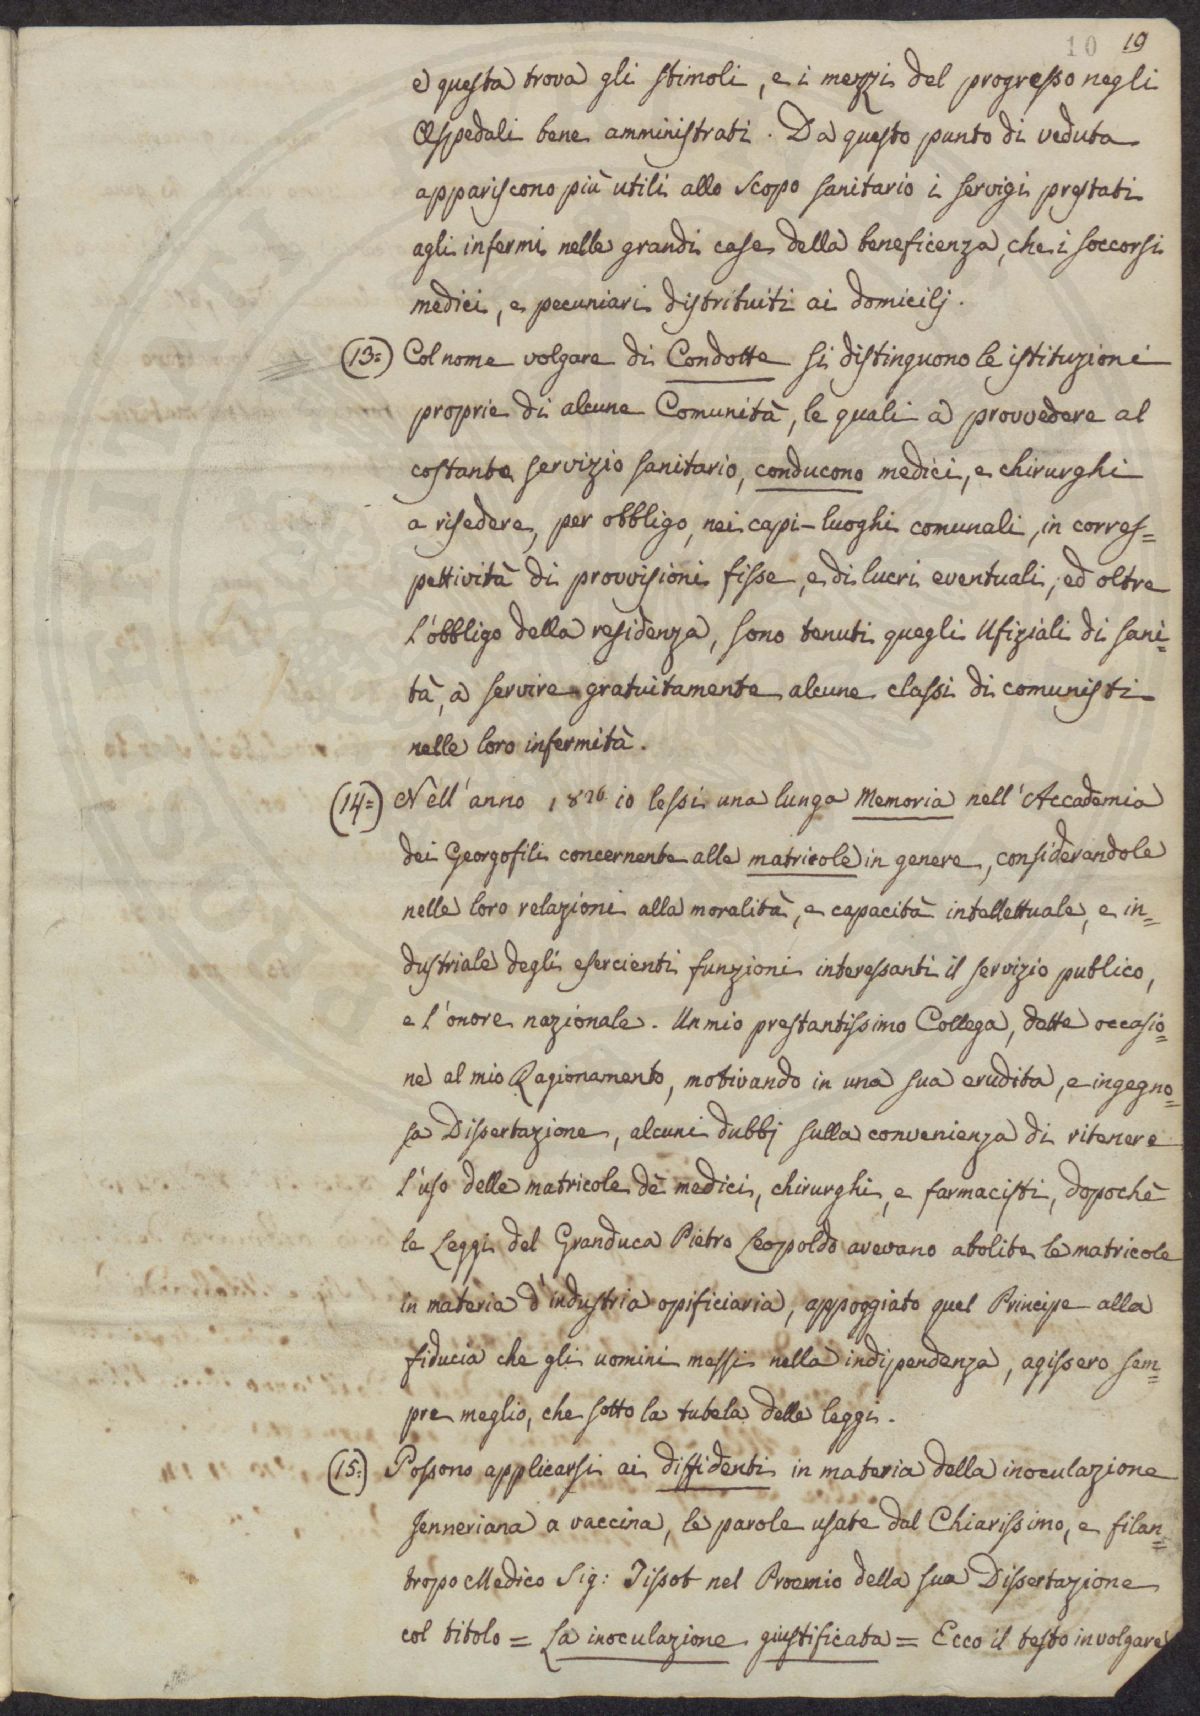 10 19
e questa trova gli stimoli, e i mezzi del progresso negli
Ospedali bene amministrati. Da questo punto di veduta
appariscono più utili allo scopo sanitario i servigi prestati
agli infermi nelle grandi case della beneficenza, che i soccorsi
medici, e pecuniari distribuiti ai domicilj.
(13=) Col nome volgare di Condotte si distinguono le istituzioni
proprie di alcune Comunità, le quali a provvedere al
costante servizio sanitario, conducono medici, e chirurghi
a risedere, per obbligo, nei capi-luoghi comunali, in corres=
pettività di provvisioni fisse, e di lucri eventuali, ed oltre
l'obbligo della residenza, sono tenuti quegli Ufiziali di sani=
tà, a servire gratuitamente alcune classi di comunisti
nelle loro infermità.
(14=) Nell'anno 1826 io lessi una lunga Memoria nell'Accademia
dei Georgofili concernente alle matricole in genere, considerandole
nelle loro relazioni alla moralità, e capacità intellettuale, e in=
dustriale degli esercienti funzioni interessanti il servizio publico,
e l'onore nazionale. Un mio prestantissimo Collega, dette occasio=
ne al mio Ragionamento, motivando in una sua erudita, e ingegno=
sa Dissertazione, alcuni dubbj sulla convenienza di ritenere
l'uso delle matricole dè medici, chirurghi, e farmacisti, dopochè
le Leggi del Granduca Pietro Leopoldo avevano abolite le matricole
in materia d'industria opificiaria, appoggiato quel Principe alla
fiducia che gli uomini messi nella indipendenza, agissero sem=
pre meglio, che sotto la tutela delle leggi.
(15=) Possono applicarsi ai diffidenti in materia della inoculazione
Jenneriana a vaccina, le parole usate dal Chiarissimo, e filan=
tropo Medico Sig: Tissot nel Proemio della sua Dissertazione
col titolo = La inoculazione giustificata = Ecco il testo in volgare